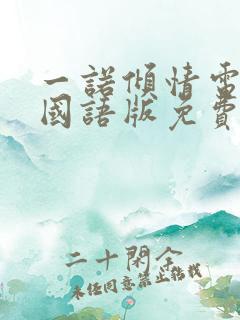 一諾傾情電
國語版免費
二十閑全
未經同意禁止轉載